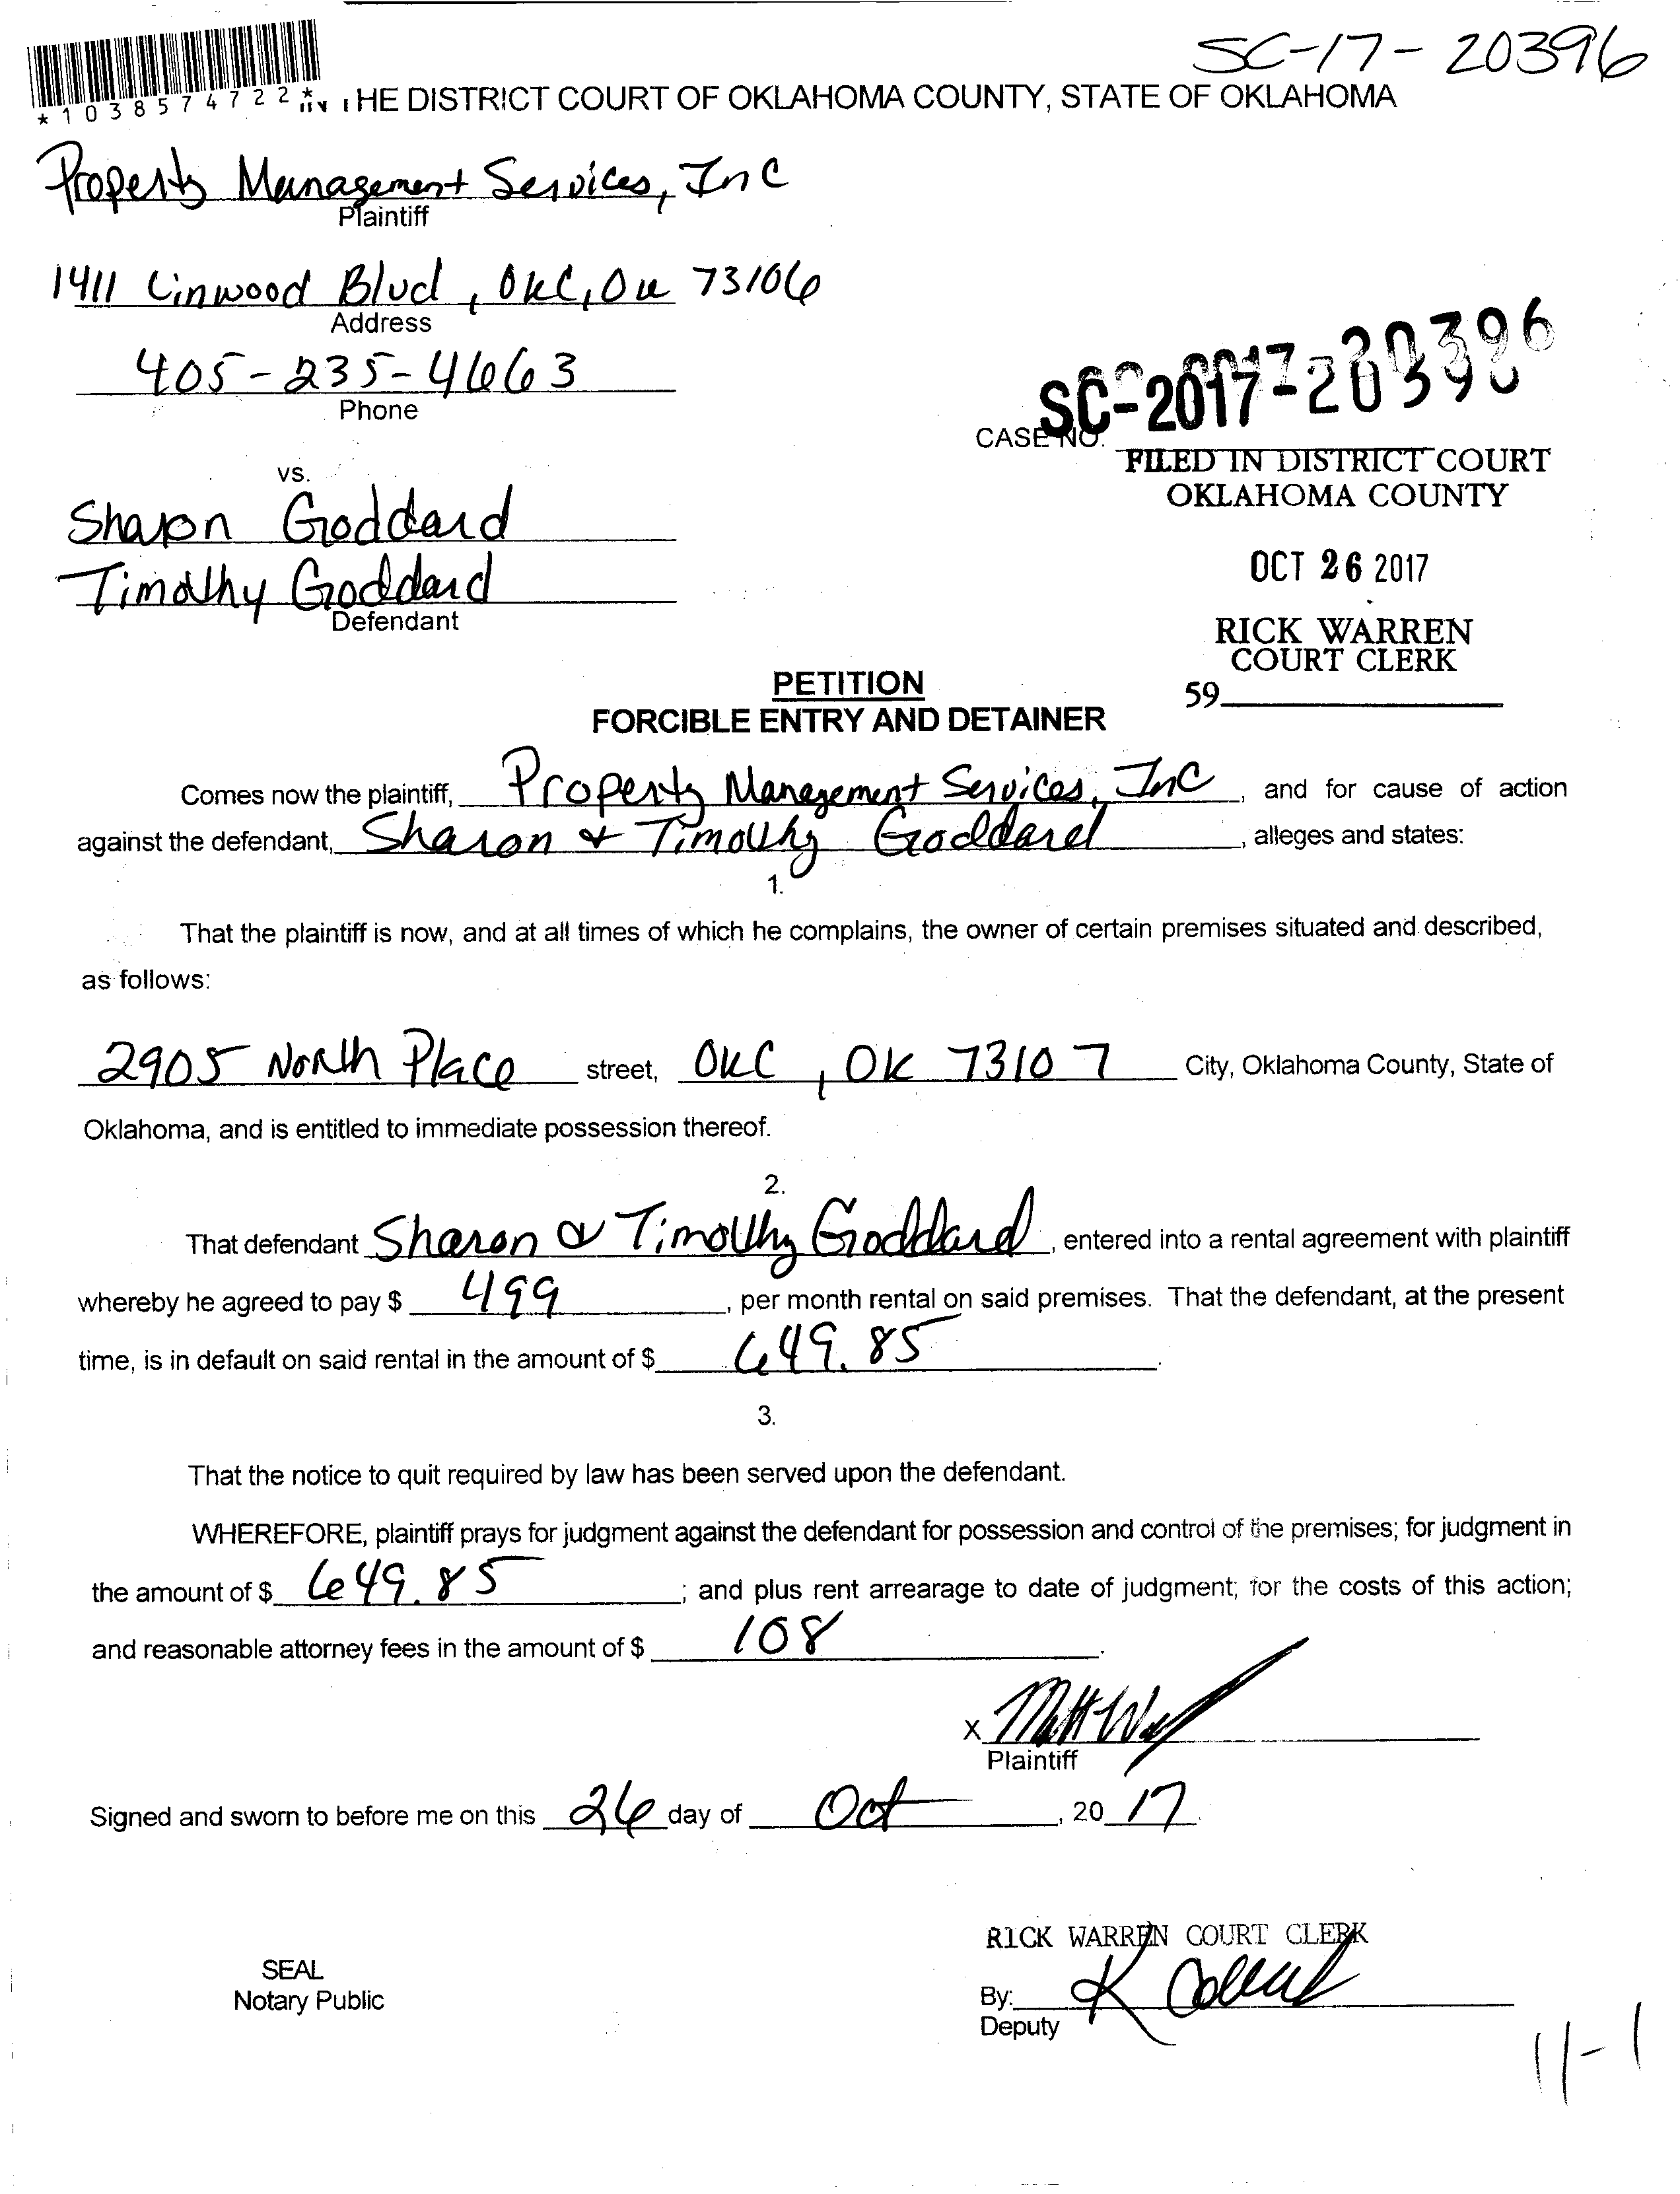 SC-17-20396
*1038574722*
IN THE DISTRICT COURT OF OKLAHOMA COUNTY, STATE OF OKLAHOMA
Property Management Services, Inc
Plaintiff
1411 Linwood Blvd, OKC, OK 73106
Address
405-235-4663
Phone
SC-2017-20396
CASE NO.
FILED IN DISTRICT COURT
OKLAHOMA COUNTY
vs.
Sharon Goddard
Timothy Goddard
Defendant
OCT 26 2017
RICK WARREN
COURT CLERK
59
PETITION
FORCIBLE ENTRY AND DETAINER
Comes now the plaintiff, Property Management Services, Inc, and for cause of action
against the defendant, Sharon & Timothy Goddard, alleges and states:
1.
That the plaintiff is now, and at all times of which he complains, the owner of certain premises situated and described,
as follows:
2905 North Place street, OKC, OK 73107 City, Oklahoma County, State of
Oklahoma, and is entitled to immediate possession thereof.
2.
That defendant Sharon & Timothy Goddard, entered into a rental agreement with plaintiff
whereby he agreed to pay $ 499, per month rental on said premises. That the defendant, at the present
time, is in default on said rental in the amount of $ 649.85.
3.
That the notice to quit required by law has been served upon the defendant.
WHEREFORE, plaintiff prays for judgment against the defendant for possession and control of the premises; for judgment in
the amount of $ 649.85; and plus rent arrearage to date of judgment; for the costs of this action;
and reasonable attorney fees in the amount of $ 108.
X
Plaintiff
Signed and sworn to before me on this 26 day of Oct, 20 17
RICK WARREN COURT CLERK
SEAL
Notary Public
By: K
Deputy
11-1